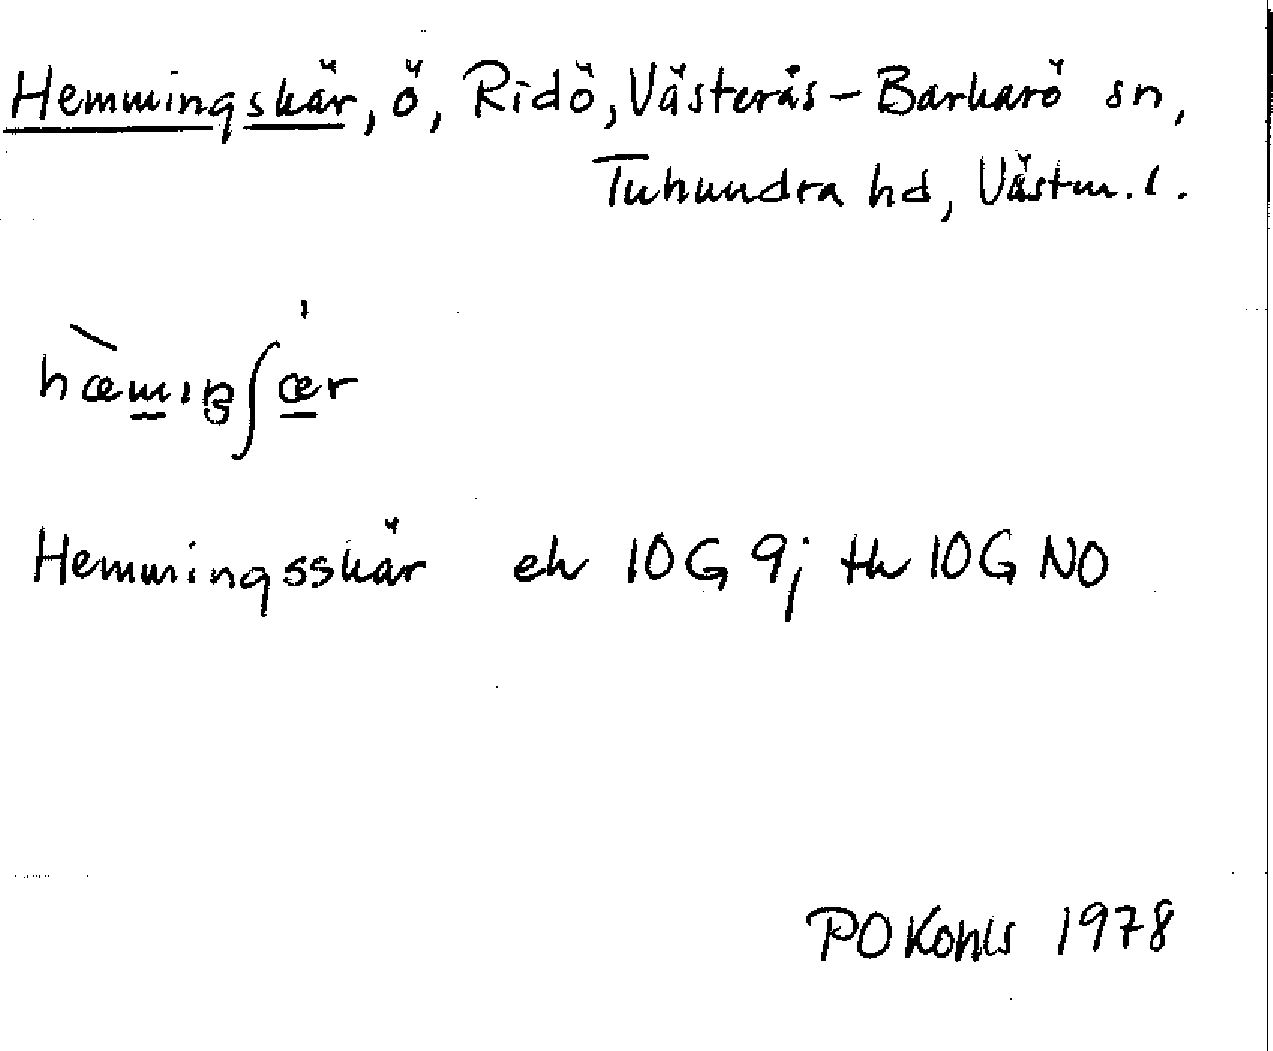 Hemmingskär, ö, Ridö, Västerås-Barkarö sn,
Tuhundra hd, Västm. l.
hæmıŋʃær
Hemmingsskär ek 10G 9j tk 10G NO
PO Kohls 1978